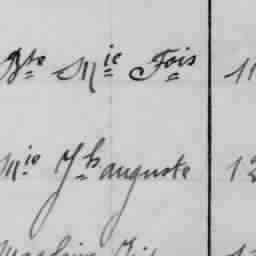 Bte Mie Fois 11
Mie Jh auguste 12